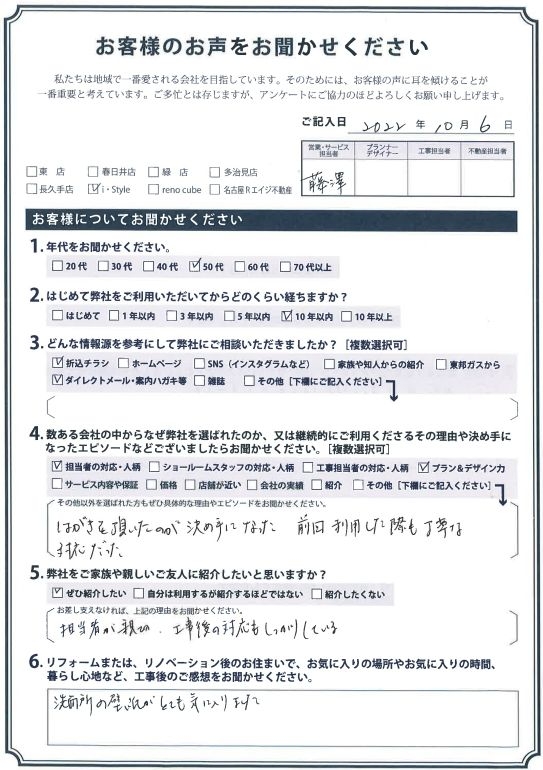 お客様のお声をお聞かせください
私たちは地域で一番愛される会社を目指しています。そのためには、お客様の声に耳を傾けることが
一番重要と考えています。ご多忙とは存じますが、アンケートにご協力のほどよろしくお願い申し上げます。
ご記入日 2022 年 10 月 6 日
営業・サービス担当者 プランナーデザイナー 工事担当者 不動産担当者
藤澤
□東 店 □春日井店 □緑 店 □多治見店
□長久手店 ☑i・Style □reno cube □名古屋Rエイジ不動産
お客様についてお聞かせください
1. 年代をお聞かせください。
□20代 □30代 □40代 ☑50代 □60代 □70代以上
2. はじめて弊社をご利用いただいてからどのくらい経ちますか？
□はじめて □1年以内 □3年以内 □5年以内 ☑10年以内 □10年以上
3. どんな情報源を参考にして弊社にご相談いただきましたか？［複数選択可］
☑折込チラシ □ホームページ □SNS（インスタグラムなど） □家族や知人からの紹介 □東邦ガスから
☑ダイレクトメール・案内ハガキ等 □雑誌 □その他［下欄にご記入ください］
4. 数ある会社の中からなぜ弊社を選ばれたのか、又は継続的にご利用くださるその理由や決め手に
なったエピソードなどございましたらお聞かせください。［複数選択可］
☑担当者の対応・人柄 □ショールームスタッフの対応・人柄 □工事担当者の対応・人柄 ☑プラン＆デザイン力
□サービス内容や保証 □価格 □店舗が近い □会社の実績 □紹介 □その他［下欄にご記入ください］
その他以外を選ばれた方もぜひ具体的な理由やエピソードをお聞かせください。
はがきを頂いたのが決め手になった 前回利用した際も丁寧な
対応だった
5. 弊社をご家族や親しいご友人に紹介したいと思いますか？
☑ぜひ紹介したい □自分は利用するが紹介するほどではない □紹介したくない
お差し支えなければ、上記の理由をお聞かせください。
担当者が親切、工事後の対応もしっかりしている
6. リフォームまたは、リノベーション後のお住まいで、お気に入りの場所やお気に入りの時間、
暮らし心地など、工事後のご感想をお聞かせください。
洗面所の壁紙がとても気に入りました